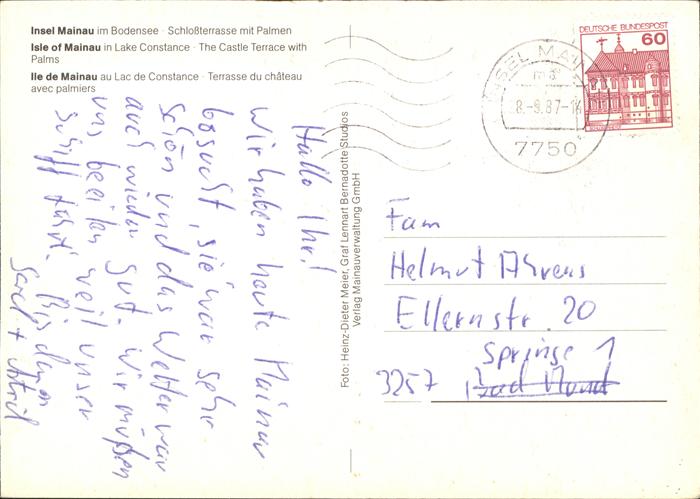 Insel Mainau im Bodensee · Schloßterrasse mit Palmen
Isle of Mainau in Lake Constance · The Castle Terrace with
Palms
Ile de Mainau au Lac de Constance · Terrasse du château
avec palmiers
Hallo Ihr!
Wir haben heute Mainau
besucht, sie war sehr
schön und das Wetter war
auch wieder gut. Wir müßen
uns beeilen weil unser
Schiff fährt. Bis dann
Astrid
Foto: Heinz-Dieter Meier, Graf Lennart Bernadotte Studios
Verlag Mainauverwaltung GmbH
DEUTSCHE BUNDESPOST
60
INSEL MAINAU
8.-9.87-1
7750
Fam
Helmut Ahrens
Ellernstr. 20
Springe 1
3257 Bad Mund